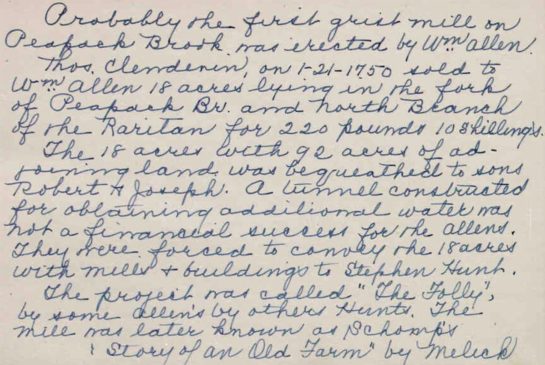 Probably the first grist mill on
Peapack Brook was erected by Wm Allen.
Thos. Clendenin, on 1-21-1750 sold to
Wm Allen 18 acres lying in the fork
of Peapack Br. and North Branch
of the Raritan for 220 pounds 10 shillings.
The 18 acres with 92 acres of ad-
joining land was bequeathed to sons
Robert & Joseph. A tunnel constructed
for obtaining additional water was
not a financial success for the Allens.
They were forced to convey the 18 acres
with mills + buildings to Stephen Hunt.
The project was called "The Folly",
by some Allen's by others Hunts. The
mill was later known as Schomp's
"Story of an Old Farm" by Melick